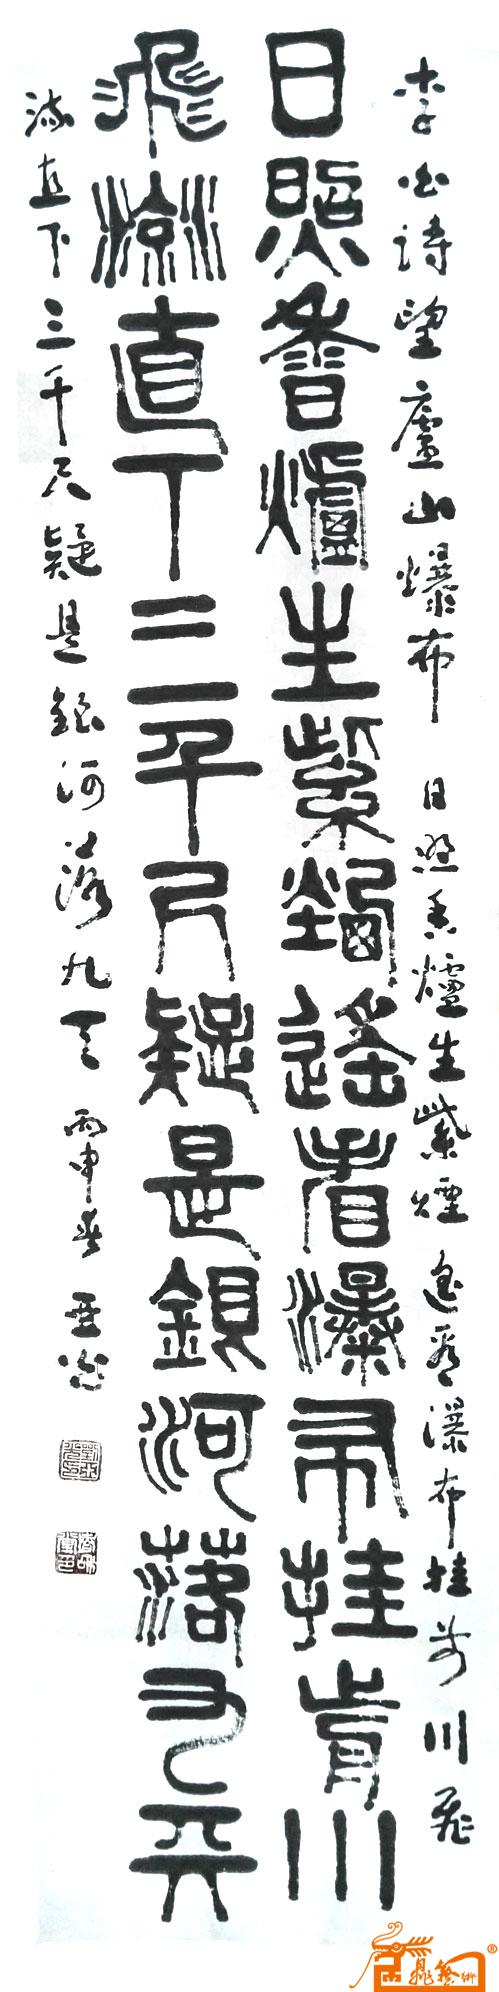 李白詩望廬山爆布 日照香爐生紫煙遙看瀑布挂前川飛
日照香爐生紫煙遙看瀑布挂前川
飛流直下三千尺疑是銀河落九天
流直下三千尺疑是銀河落九天 丙申春 亚